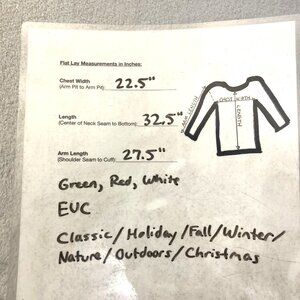 Flat Lay Measurements in Inches:
Chest Width
(Arm Pit to Arm Pit) 22.5"
Length
(Center of Neck Seam to Bottom) 32.5"
Arm Length
(Shoulder Seam to Cuff) 27.5"
ARM LENGTH
CHEST WIDTH
LENGTH
Green, Red, White
EUC
Classic/Holiday/Fall/Winter/
Nature/Outdoors/Christmas